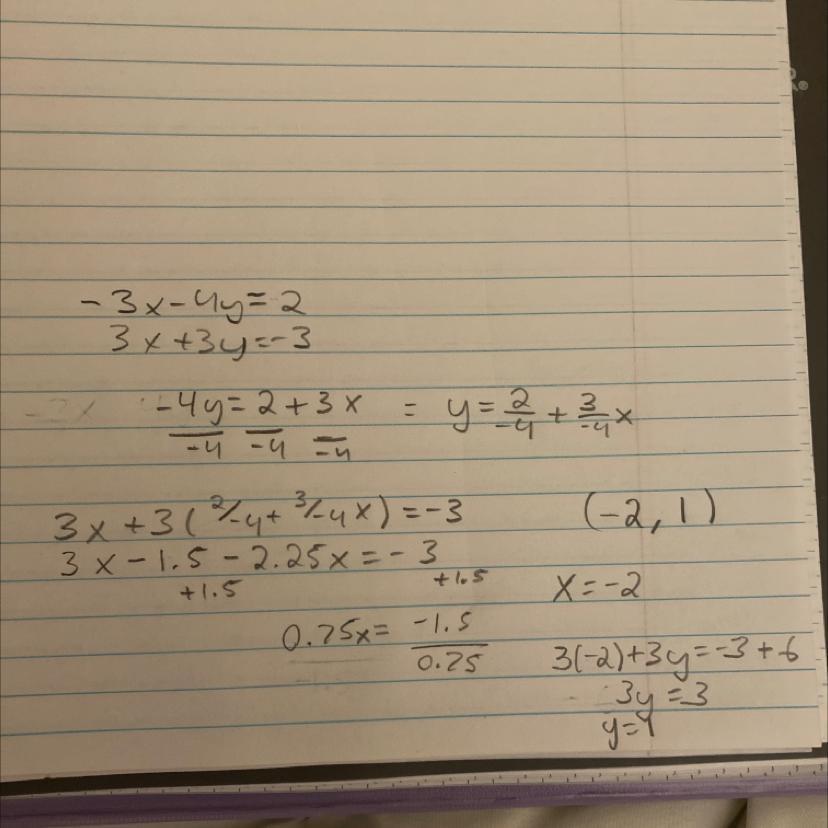 -3x-4y=2
3x+3y=-3
-4y=2+3x = y=2/-4+3/-4x
-4 -4 -4
3x+3(2/-4+3/-4x)=-3
(-2,1)
3x-1.5-2.25x=-3
+1.5 +1.5
x=-2
0.75x=-1.5/0.75
3(-2)+3y=-3+6
3y=3
y=1